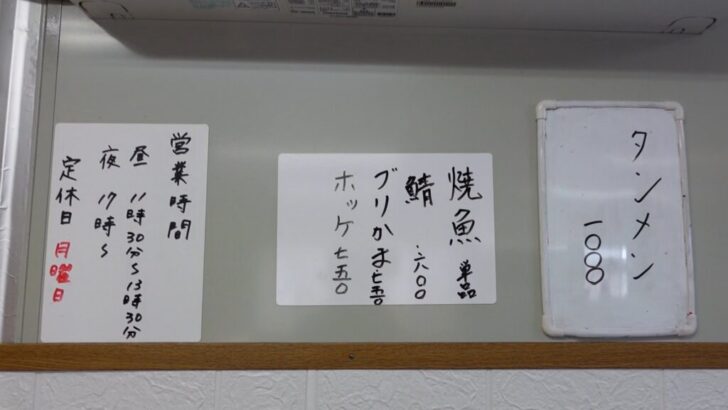 タンメン
一〇〇〇
焼魚 単品
鯖 六〇〇
ブリかま 七五〇
ホッケ 七五〇
営業時間
昼 11時30分〜13時30分
夜 17時〜
定休日 月曜日